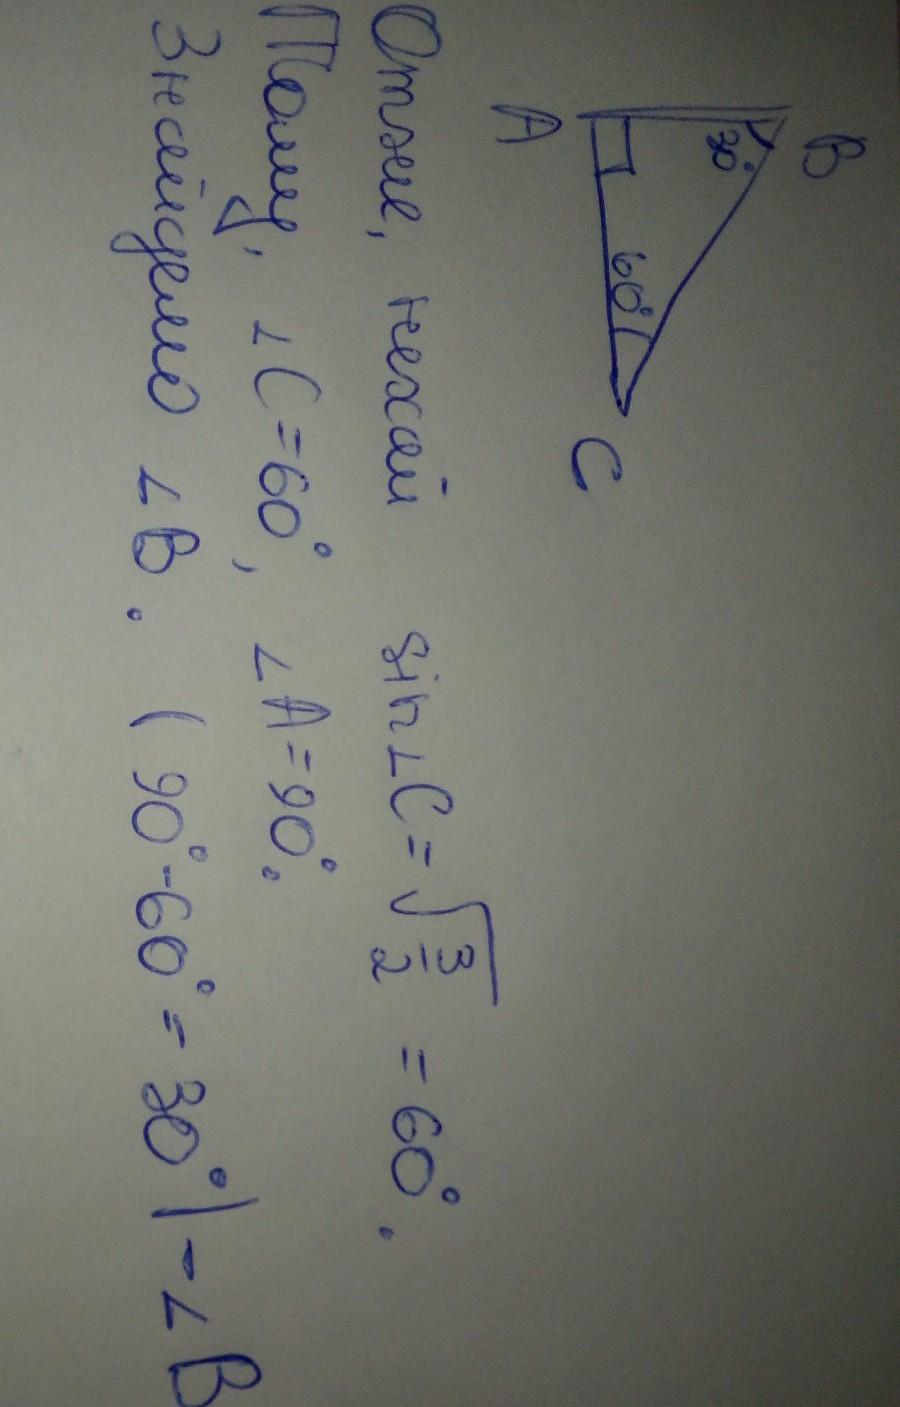 B
30°
60°
A
C
Отже, нехай sin∠C = √3/2 = 60°.
Тому, ∠C = 60°, ∠A = 90°.
Знайдемо ∠B. (90° - 60° = 30°) - ∠B